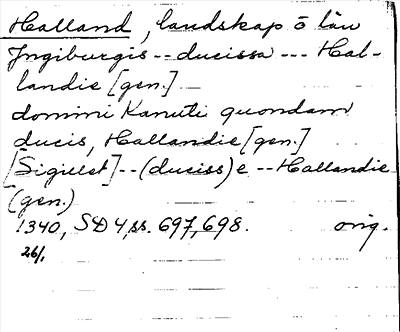 Halland, landskap o län
Ingiburgis -- ducissa --- Hal-
landie [gen.]
domini Kanuti quondam
ducis, Hallandie [gen.]
[Sigillet] -- (duciss)e -- Hallandie
(gen.)
1340, SD 4, ss. 697, 698. orig.
26/1